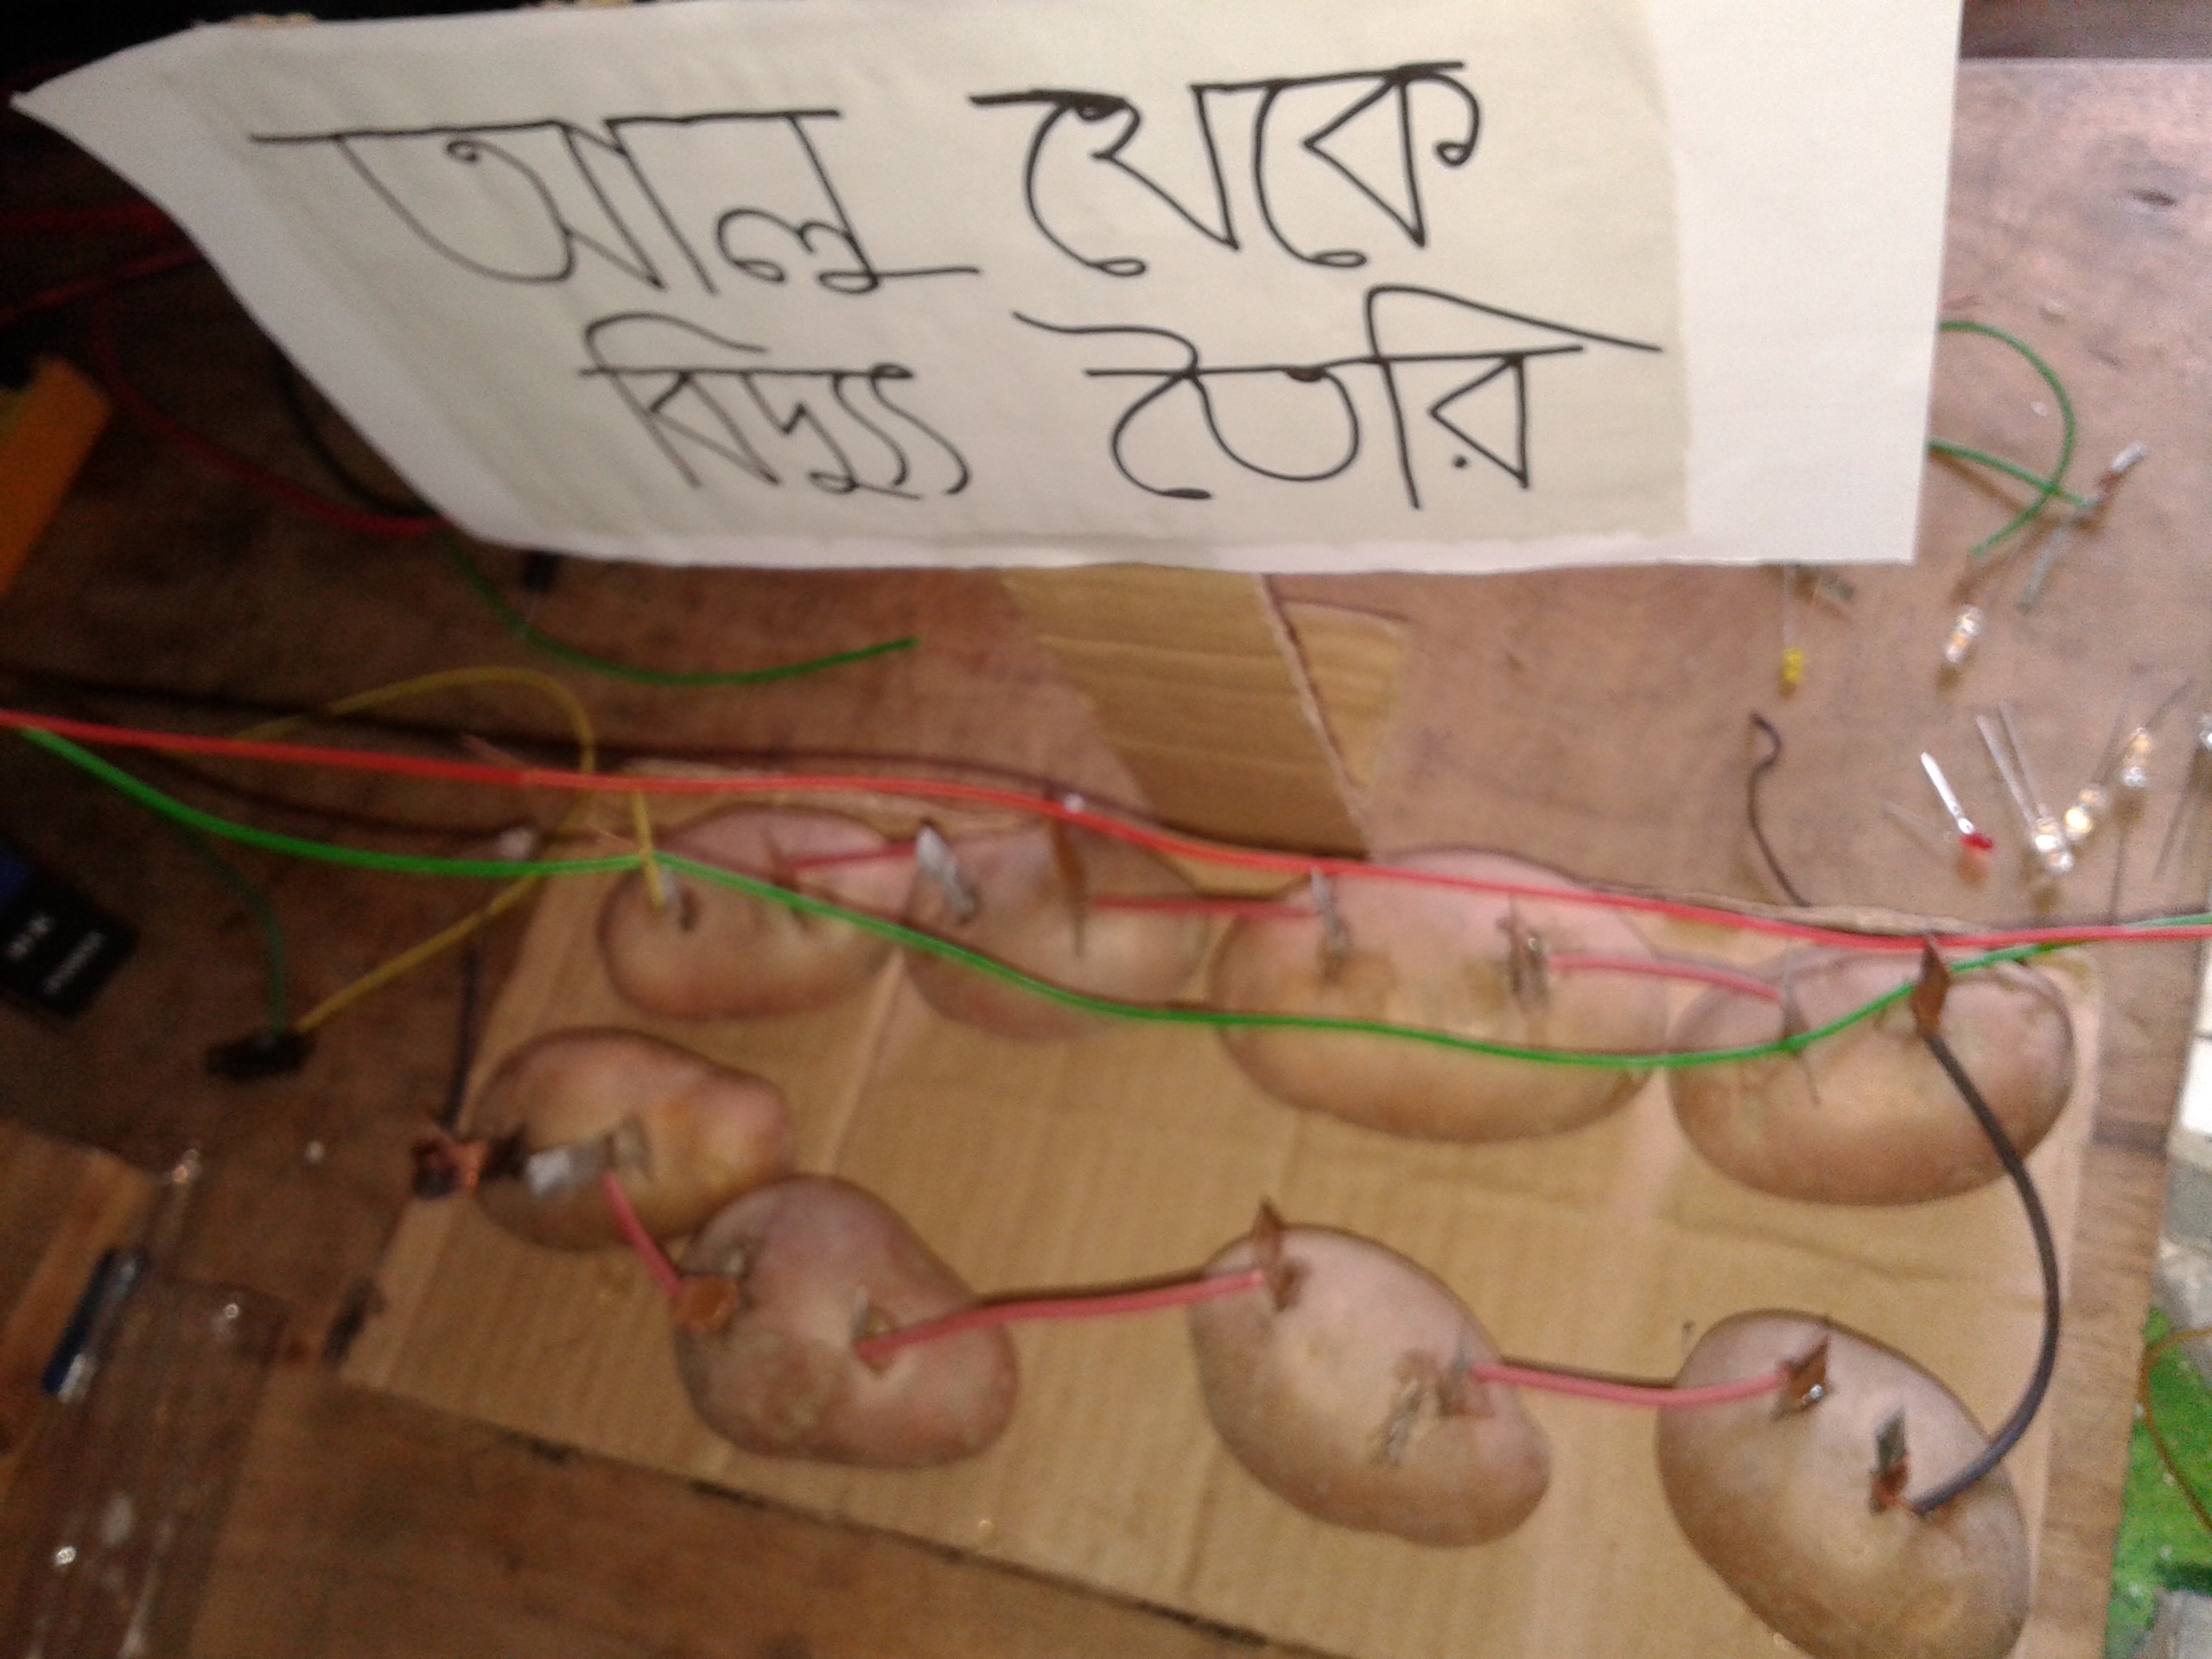 আলু থেকে
বিদ্যুৎ তৈরি